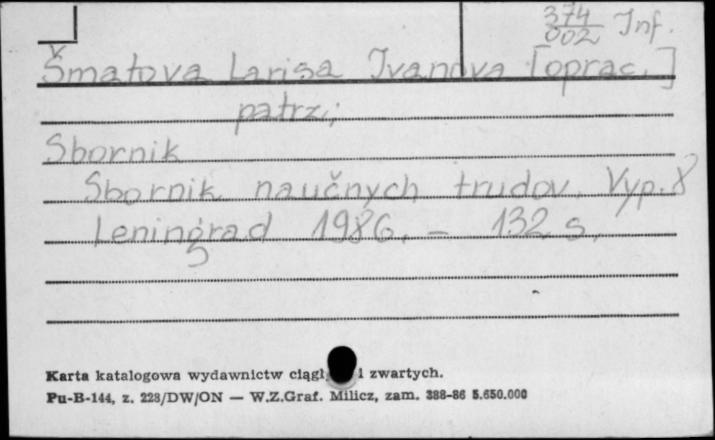 374/002 Inf.
Šmatova Larisa Ivanova [oprac.]
patrz:
Sbornik
Sbornik naučnych trudov. Vyp. 8
Leningrad 1986. – 132 s.
Karta katalogowa wydawnictw ciągł i zwartych.
Pu-B-144, z. 228/DW/ON — W.Z.Graf. Milicz, zam. 388-86 5.650.000